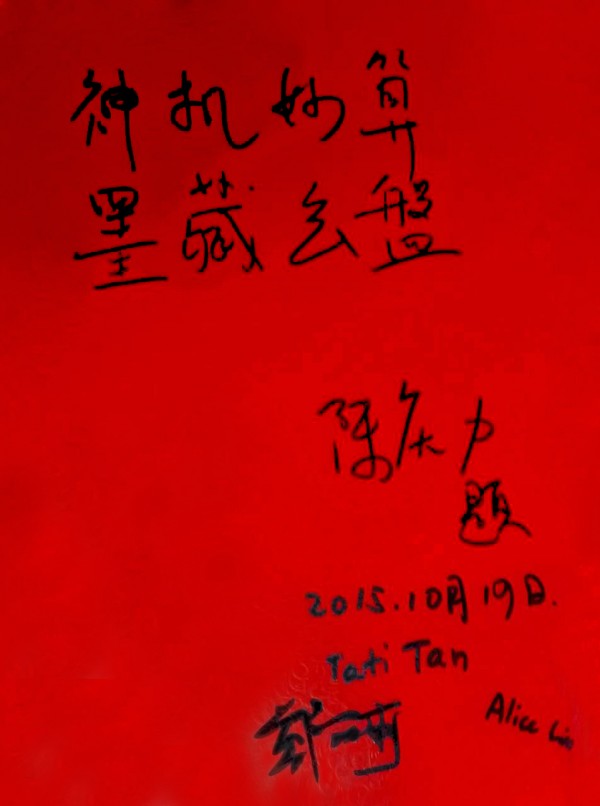 神机妙算
墨藏玄盤
陈天力
题
2015.10月19日.
Tati Tan
Alice